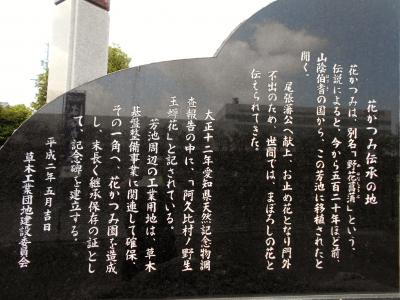 花かつみ伝承の地
花かつみは、別名「野花菖蒲」という、
伝説によると、今から五百二十年ほど前、
山陰伯耆の国から、この芳池に移植されたと
聞く。
尾張藩公へ献上、お止め花となり門外
不出のため、世間では、まぼろしの花と
伝えられてきた。
大正十二年愛知県天然記念物調
査報告の中に、「阿久比村ノ野生
玉蟬花」と記されている。
芳池周辺の工業用地は、草木
基盤整備事業に関連して確保
その一角へ、花かつみ園を造成
し、末長く継承保存の証とし
て、記念碑を建立する。
平成二年五月吉日
草木工業団地建設委員会